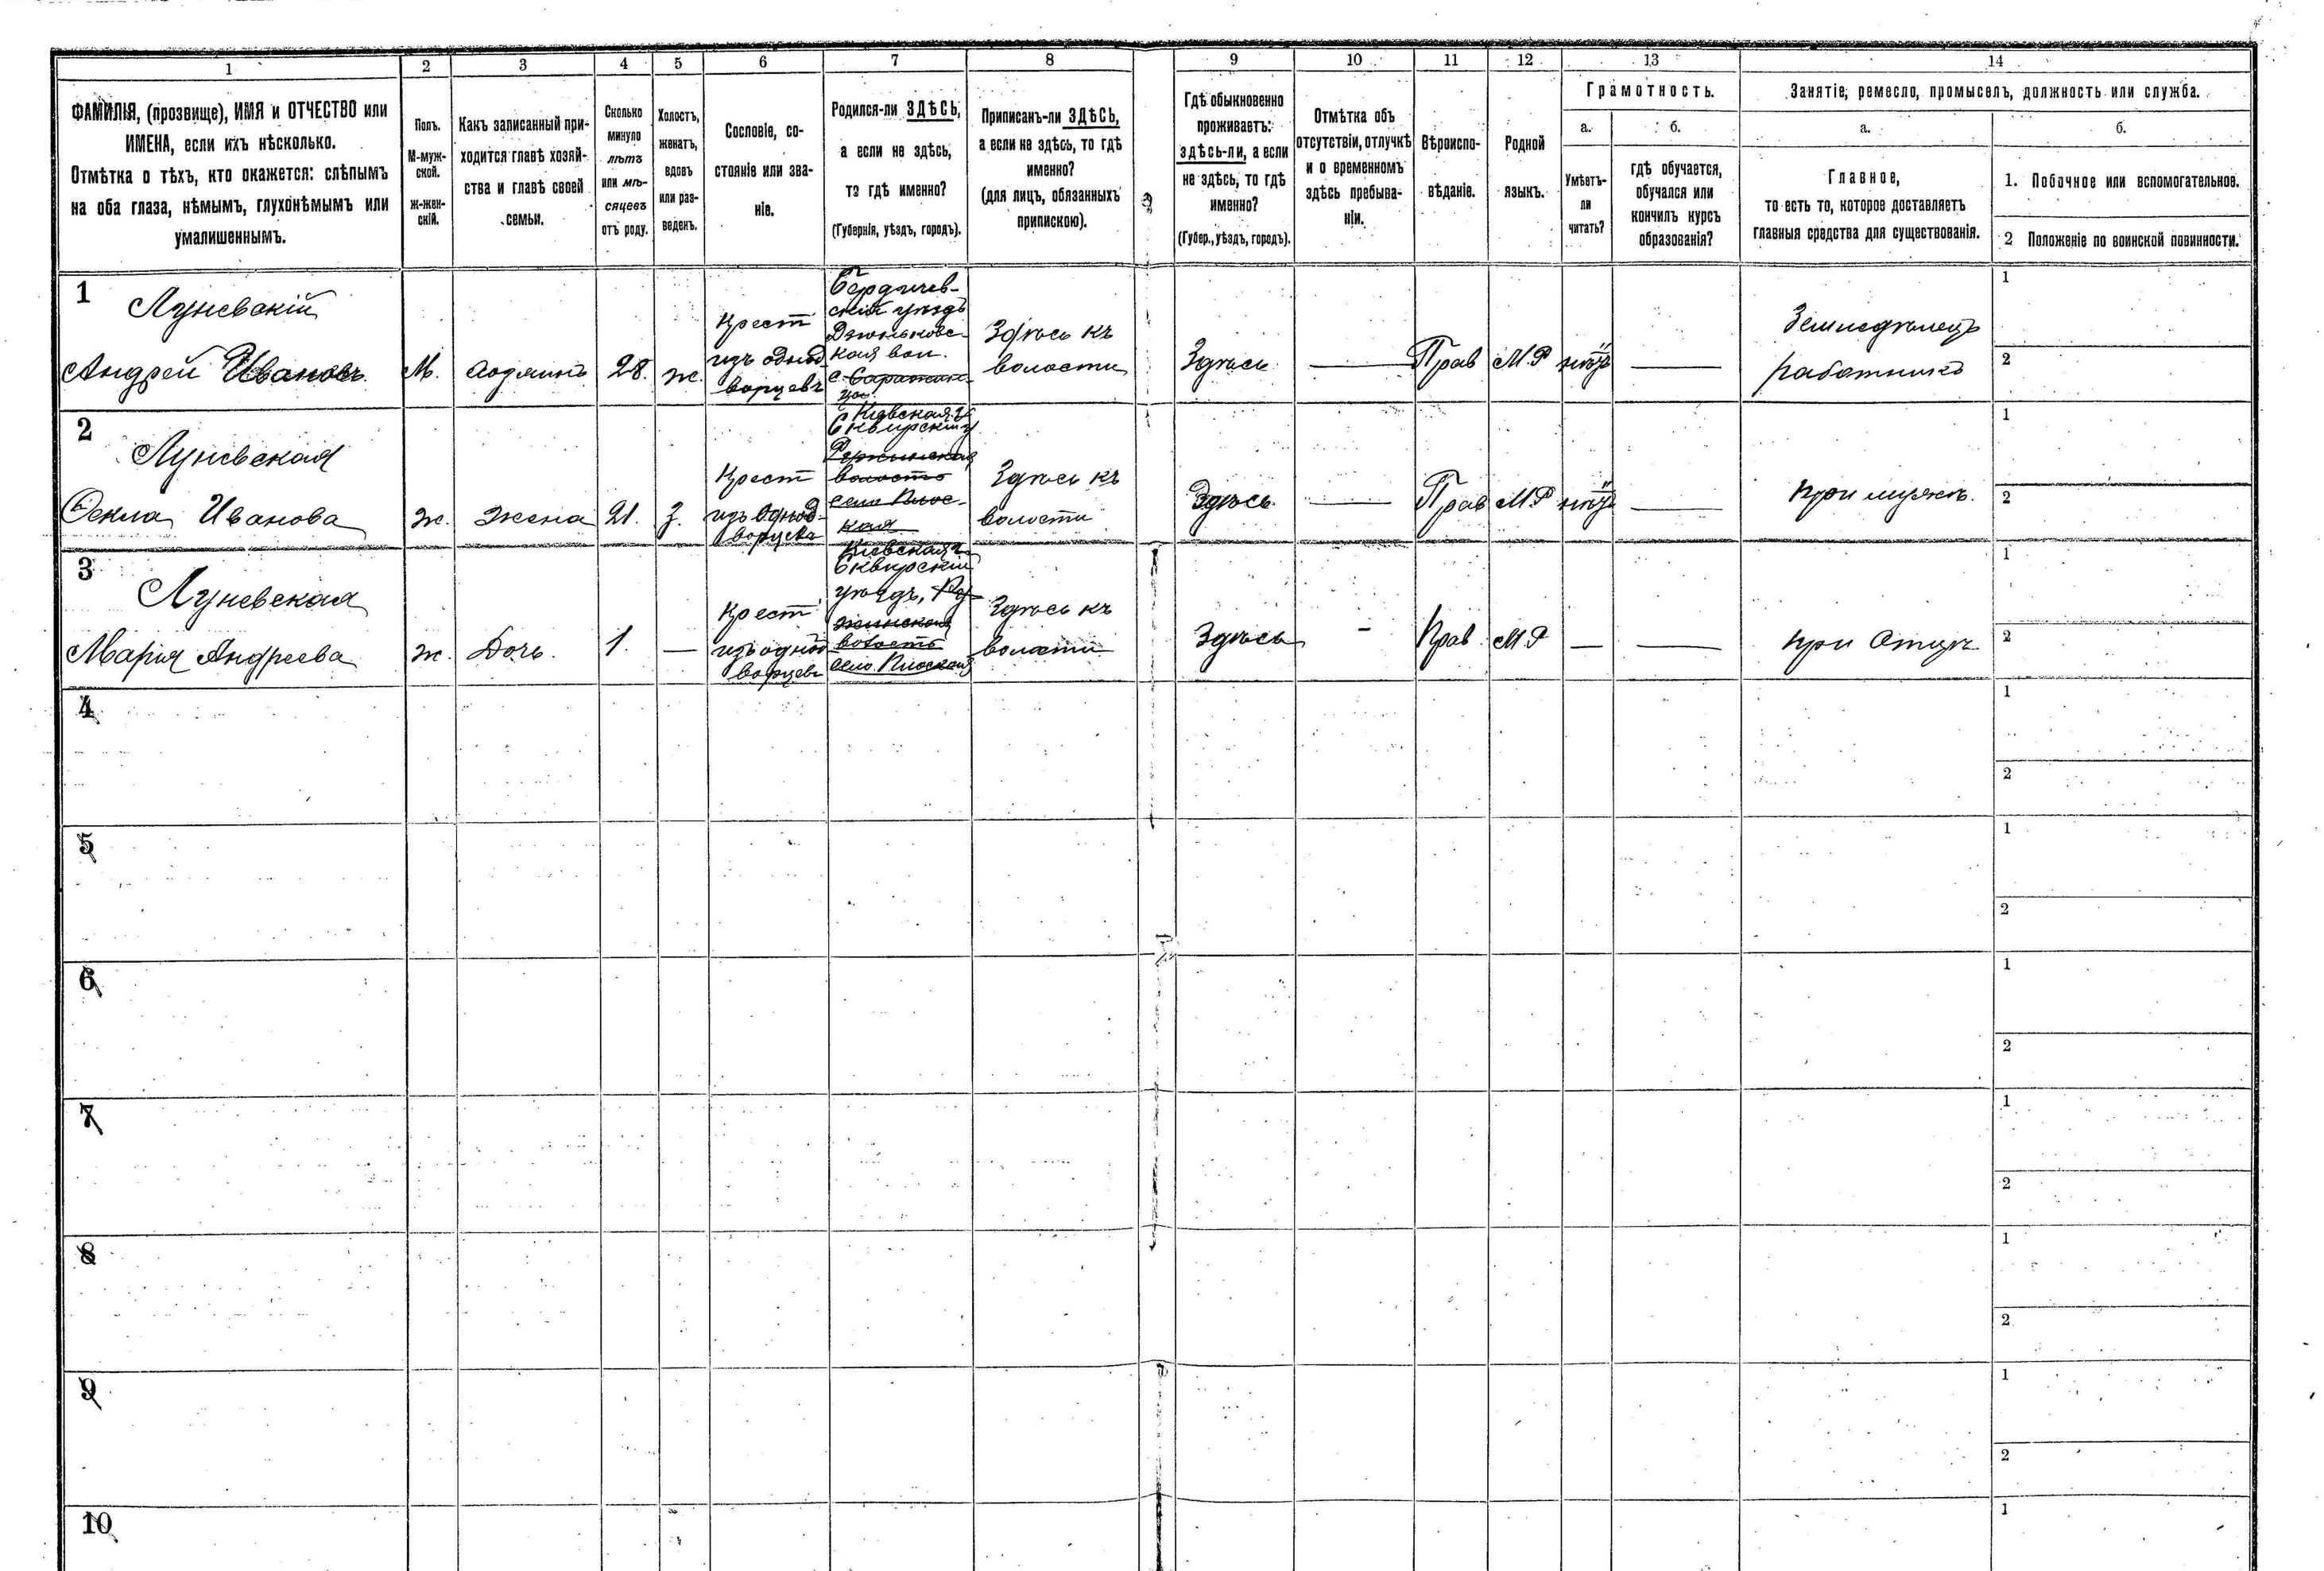 1 2 3 4 5 6 7 8 9 10 11 12 13 14
ФАМИЛІЯ, (прозвище), ИМЯ и ОТЧЕСТВО или
ИМЕНА, если ихъ нѣсколько.
Отмѣтка о тѣхъ, кто окажется: слѣпымъ
на оба глаза, нѣмымъ, глухонѣмымъ или
умалишеннымъ.
Полъ.
М-муж-
ской.
ж-жен-
скій.
Какъ записанный при-
ходится главѣ хозяй-
ства и главѣ своей
семьи.
Сколько
минуло
лѣтъ
или мѣ-
сяцевъ
отъ роду.
Холостъ,
женатъ,
вдовъ
или раз-
веденъ.
Сословіе, со-
стояніе или зва-
ніе.
Родился-ли ЗДѢСЬ,
а если не здѣсь,
то гдѣ именно?
(Губернія, уѣздъ, городъ).
Приписанъ-ли ЗДѢСЬ,
а если не здѣсь, то гдѣ
именно?
(для лицъ, обязанныхъ
припискою).
Гдѣ обыкновенно
проживаетъ:
здѣсь-ли, а если
не здѣсь, то гдѣ
именно?
(Губер., уѣздъ, городъ).
Отмѣтка объ
отсутствіи, отлучкѣ
и о временномъ
здѣсь пребыва-
ніи.
Вѣроиспо-
вѣданіе.
Родной
языкъ.
Грамотность.
а.
Умѣетъ-
ли
читать?
б.
гдѣ обучается,
обучался или
кончилъ курсъ
образованія?
Занятіе, ремесло, промыселъ, должность или служба.
а.
Главное,
то есть то, которое доставляетъ
главныя средства для существованія.
б.
1. Побочное или вспомогательное.
2 Положеніе по воинской повинности.
1
Луневскій
Андрей Ивановъ
М.
28.
ж.
Крест
изъ однод
ворцевъ
Бердичев-
скій уѣздъ
Дзюньковс-
кая вол.
Здѣсь къ
волости
Здѣсь
Прав
М Р
нѣтъ
Земледѣлецъ
работникъ
1
2
2
Луневская
Фекла Иванова
ж.
Жена
21.
З.
Крест
изъ однод
ворцевъ
Кіевская г
Сквирскій у
волость
село Плос-
кая
Здѣсь къ
волости
Здѣсь
Прав
М Р
нѣтъ
при мужѣ.
1
2
3
Луневская
Марія Андреева
ж.
Дочь
1.
Крест
изъ однод
ворцевъ
Кіевская г
Сквирскій
уѣздъ, Ру
жинская
волость
село Плоская
Здѣсь къ
волости
Здѣсь
Прав
М Р
при Отцѣ
1
2
4
1
2
5
1
2
6
1
2
7
1
2
8
1
2
9
1
2
10
1